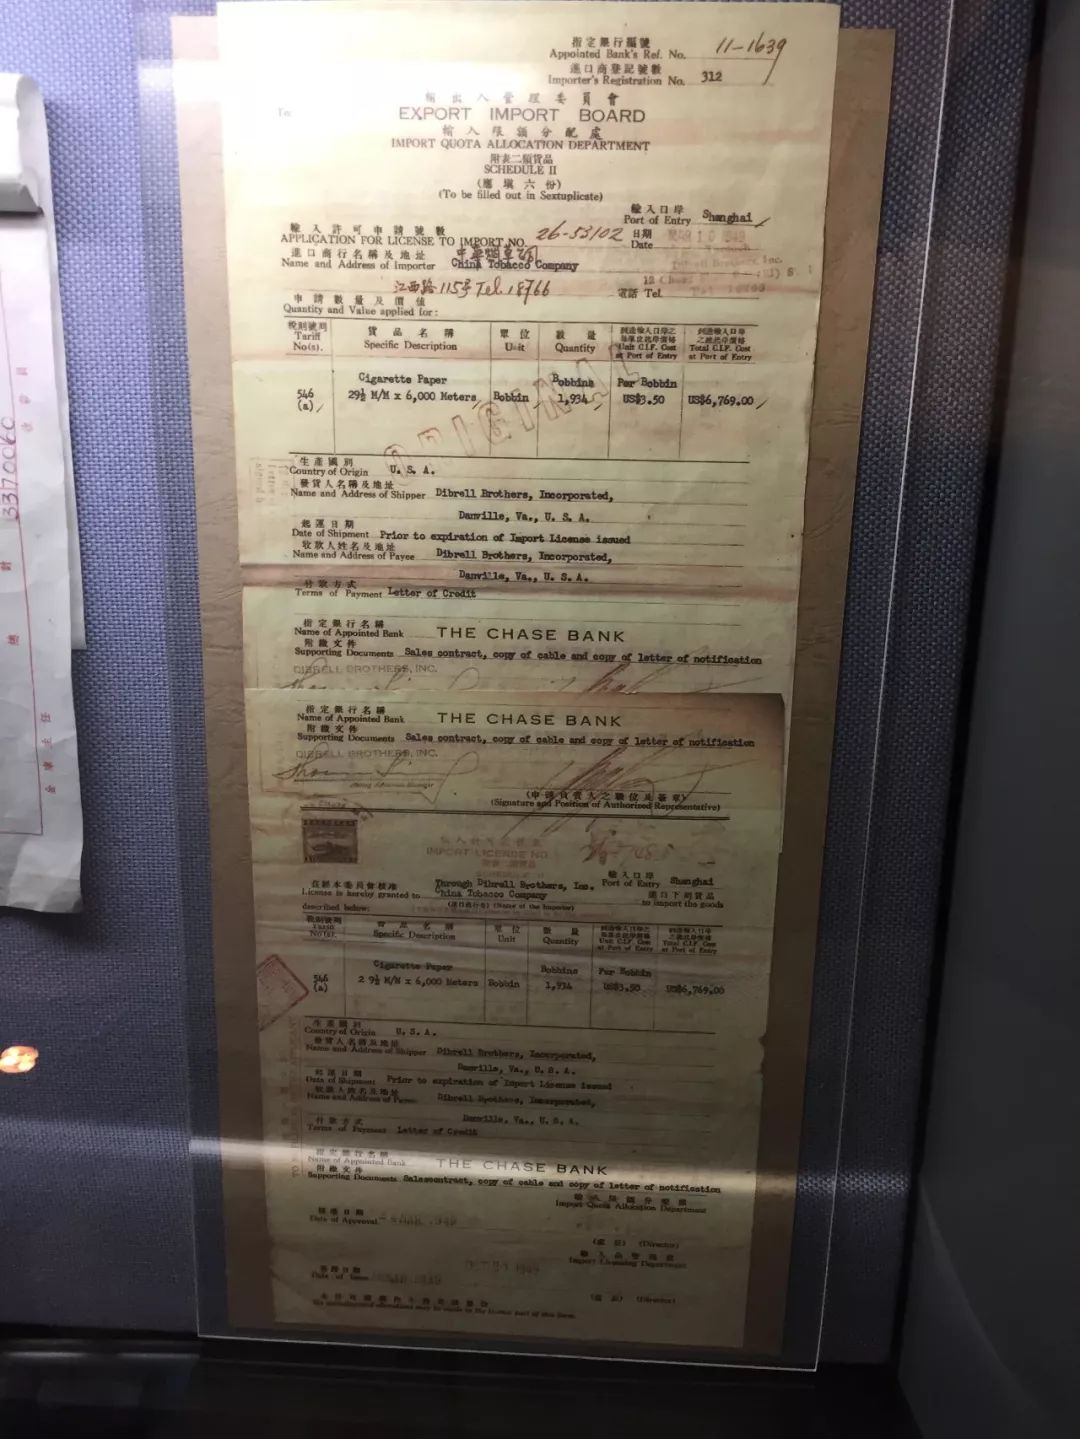 指定銀行編號
Appointed Bank's Ref. No. 11-1639
進口商登記號數
Importer's Registration No. 312
To:
輸出入管理委員會
EXPORT IMPORT BOARD
輸入限額分配處
IMPORT QUOTA ALLOCATION DEPARTMENT
附表二類貨品
SCHEDULE II
(應填六份)
(To be filled out in Sextuplicate)
輸入口岸
Port of Entry Shanghai
輸入許可申請號數
APPLICATION FOR LICENSE TO IMPORT NO. 26-53102 日期
Date
進口商行名稱及地址
Name and Address of Importer China Tobacco Company
江西路115号 Tel. 18766 電話 Tel.
申請數量及價值
Quantity and Value applied for:
稅則號別 貨品名稱 單位 數量
Tariff No(s). Specific Description Unit Quantity Unit C.I.F. Cost at Port of Entry Total C.I.F. Cost at Port of Entry
Cigarette Paper Bobbins Per Bobbin
546 (a) 29½ M/M x 6,000 Meters Bobbin 1,934 US$3.50 US$6,769.00
ORIGINAL
生產國別
Country of Origin U. S. A.
發貨人名稱及地址
Name and Address of Shipper Dibrell Brothers, Incorporated,
Danville, Va., U. S. A.
起運日期
Date of Shipment Prior to expiration of Import License issued
收款人姓名及地址
Name and Address of Payee Dibrell Brothers, Incorporated,
Danville, Va., U. S. A.
付款方式
Terms of Payment Letter of Credit
指定銀行名稱
Name of Appointed Bank THE CHASE BANK
附繳文件
Supporting Documents Sales contract, copy of cable and copy of letter of notification
DIBRELL BROTHERS, INC.
指定銀行名稱
Name of Appointed Bank THE CHASE BANK
附繳文件
Supporting Documents Sales contract, copy of cable and copy of letter of notification
DIBRELL BROTHERS, INC.
(申請負責人之職位及簽章)
(Signature and Position of Authorized Representative)
IMPORT LICENSE NO.
SCHEDULE II
輸入口岸
Through Dibrell Brothers, Inc. Port of Entry Shanghai
License is hereby granted to China Tobacco Company to import the goods
described below: (Name of the Importer)
稅則號別 貨品名稱 單位 數量
Tariff No(s). Specific Description Unit Quantity Unit C.I.F. Cost at Port of Entry Total C.I.F. Cost at Port of Entry
Cigarette Paper Bobbins Per Bobbin
546 (a) 2 9½ M/M x 6,000 Meters Bobbin 1,934 US$3.50 US$6,769.00
生產國別
Country of Origin U. S. A.
發貨人名稱及地址
Name and Address of Shipper Dibrell Brothers, Incorporated,
Danville, Va., U. S. A.
起運日期
Date of Shipment Prior to expiration of Import License issued
收款人姓名及地址
Name and Address of Payee Dibrell Brothers, Incorporated,
Danville, Va., U. S. A.
付款方式
Terms of Payment Letter of Credit
指定銀行名稱
Name of Appointed Bank THE CHASE BANK
附繳文件
Supporting Documents Salescontract, copy of cable and copy of letter of notification
Import Quota Allocation Department
Date of Approval MAR 1949
(Director)
Import Licensing Department
Date of Issue
(Director)
3370060